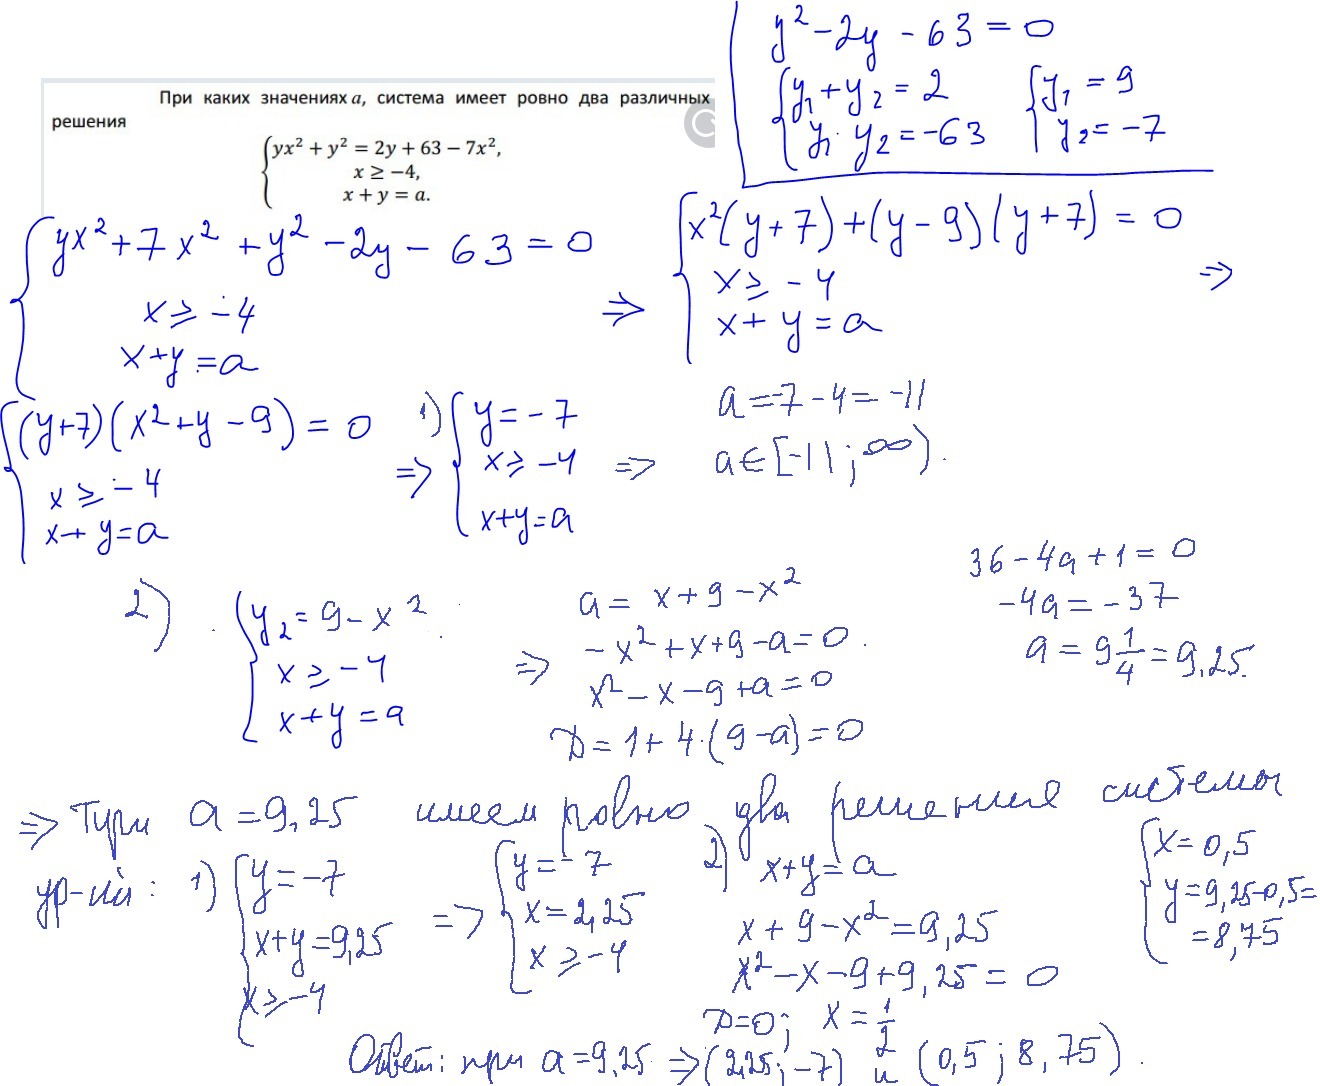 y² - 2y - 63 = 0
{ y₁ + y₂ = 2
y₁ · y₂ = -63
{ y₁ = 9
y₂ = -7
При каких значениях a, система имеет ровно два различных
решения
{ yx² + y² = 2y + 63 − 7x²,
x ≥ −4,
x + y = a.
{ yx² + 7x² + y² - 2y - 63 = 0
x ≥ -4
x + y = a
⇒
{ x²(y+7) + (y-9)(y+7) = 0
x ≥ -4
x + y = a
⇒
{ (y+7)(x² + y - 9) = 0
x ≥ -4
x + y = a
⇒
1) { y = -7
x ≥ -4
x + y = a
⇒
a = -7 - 4 = -11
a ∈ [-11; ∞).
2) { y₂ = 9 - x²
x ≥ -4
x + y = a
⇒
a = x + 9 - x²
- x² + x + 9 - a = 0
x² - x - 9 + a = 0
D = 1 + 4·(9 - a) = 0
36 - 4a + 1 = 0
-4a = -37
a = 9 1/4 = 9,25.
⇒ При a = 9,25 имеем ровно два решения системы
ур-ий:
1) { y = -7
x + y = 9,25
x ≥ -4
⇒
{ y = -7
x = 2,25
x ≥ -4
2) x + y = a
x + 9 - x² = 9,25
x² - x - 9 + 9,25 = 0
D = 0; x = 1/2
{ x = 0,5
y = 9,25-0,5 =
= 8,75
Ответ: при a = 9,25 ⇒ (2,25; -7) и (0,5; 8,75).